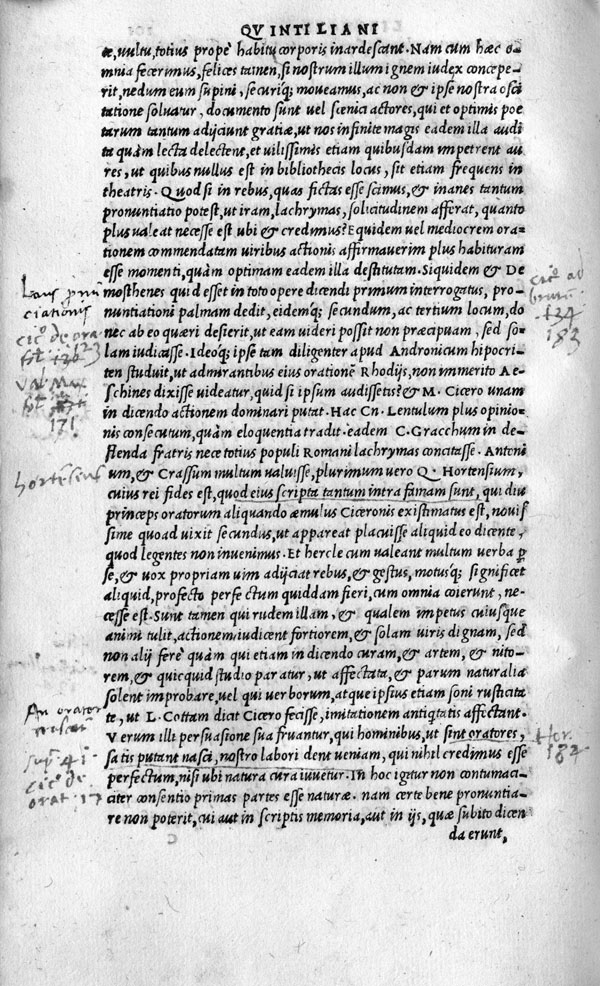 QVINTILIANI
te, uultu, totius propè habitu corporis inardescant. Nam cum hæc o-
mnia fecerimus, felices tamen, si nostrum illum ignem iudex concepe-
rit, nedum eum supini, securiq; moueamus, ac non & ipse nostra osci
tatione soluatur, documento sunt uel scænici actores, qui et optimis poë
tarum tantum adijciunt gratiæ, ut nos infinite magis eadem illa audi
ta quàm lecta delectent, et uilissimis etiam quibusdam impetrent au
res, ut quibus nullus est in bibliothecis locus, sit etiam frequens in
theatris. Quod si in rebus, quas fictas esse scimus, & inanes tantum
pronuntiatio potest, ut iram, lachrymas, solicitudinem afferat, quanto
plus ualeat necesse est ubi & credimus? Equidem uel mediocrem ora-
tionem commendatam uiribus actionis affirmauerim plus habituram
esse momenti, quàm optimam eadem illa destitutam. Siquidem & De
mosthenes quid esset in toto opere dicendi primum interrogatus, pro-
nuntiationi palmam dedit, eidemq; secundum, ac tertium locum, do
nec ab eo quæri desierit, ut eam uideri possit non præcipuam, sed so-
lam iudicasse. Ideoq; ipse tam diligenter apud Andronicum hipocri-
ten studuit, ut admirantibus eius orationē Rhodijs, non immerito Ae-
schines dixisse uideatur, quid si ipsum audissetis? & M. Cicero unam
in dicendo actionem dominari putat. Hac Cn. Lentulum plus opinio-
nis consecutum, quàm eloquentia tradit. eadem C. Gracchum in de-
flenda fratris nece totius populi Romani lachrymas concitasse. Antoni
um, & Crassum multum ualuisse, plurimum uero Q. Hortensium,
cuius rei fides est, quod eius scripta tantum intra famam sunt, qui diu
princeps oratorum aliquando æmulus Ciceronis existimatus est, nouis
sime quoad uixit secundus, ut appareat placuisse aliquid eo dicente,
quod legentes non inuenimus. Et hercle cum ualeant multum uerba ꝑ
se, & uox propriam uim adijciat rebus, & gestus, motusq; significet
aliquid, profecto perfectum quiddam fieri, cum omnia coierunt, ne-
cesse est. Sunt tamen qui rudem illam, & qualem impetus cuiusque
animi tulit, actionem iudicent fortiorem, & solam uiris dignam, sed
non alij ferè quàm qui etiam in dicendo curam, & artem, & nito-
rem, & quicquid studio paratur, ut affectata, & parum naturalia
solent improbare, uel qui uerborum, atque ipsius etiam soni rusticita
te, ut L. Cottam dicat Cicero fecisse, imitationem antiqtatis affectant.
Verum illi persuasione sua fruantur, qui hominibus, ut sint oratores,
satis putant nasci, nostro labori dent ueniam, qui nihil credimus esse
perfectum, nisi ubi natura cura iuuetur. In hoc igitur non contumaci-
citer consentio primas partes esse naturæ. nam certe bene pronuntia-
re non poterit, cui aut in scriptis memoria, aut in ijs, quæ subito dicen
da erunt,
ciationis
cic.º de ora
171
hortensius
An orator
cic.º de
orat. 17
Hor.
182
183